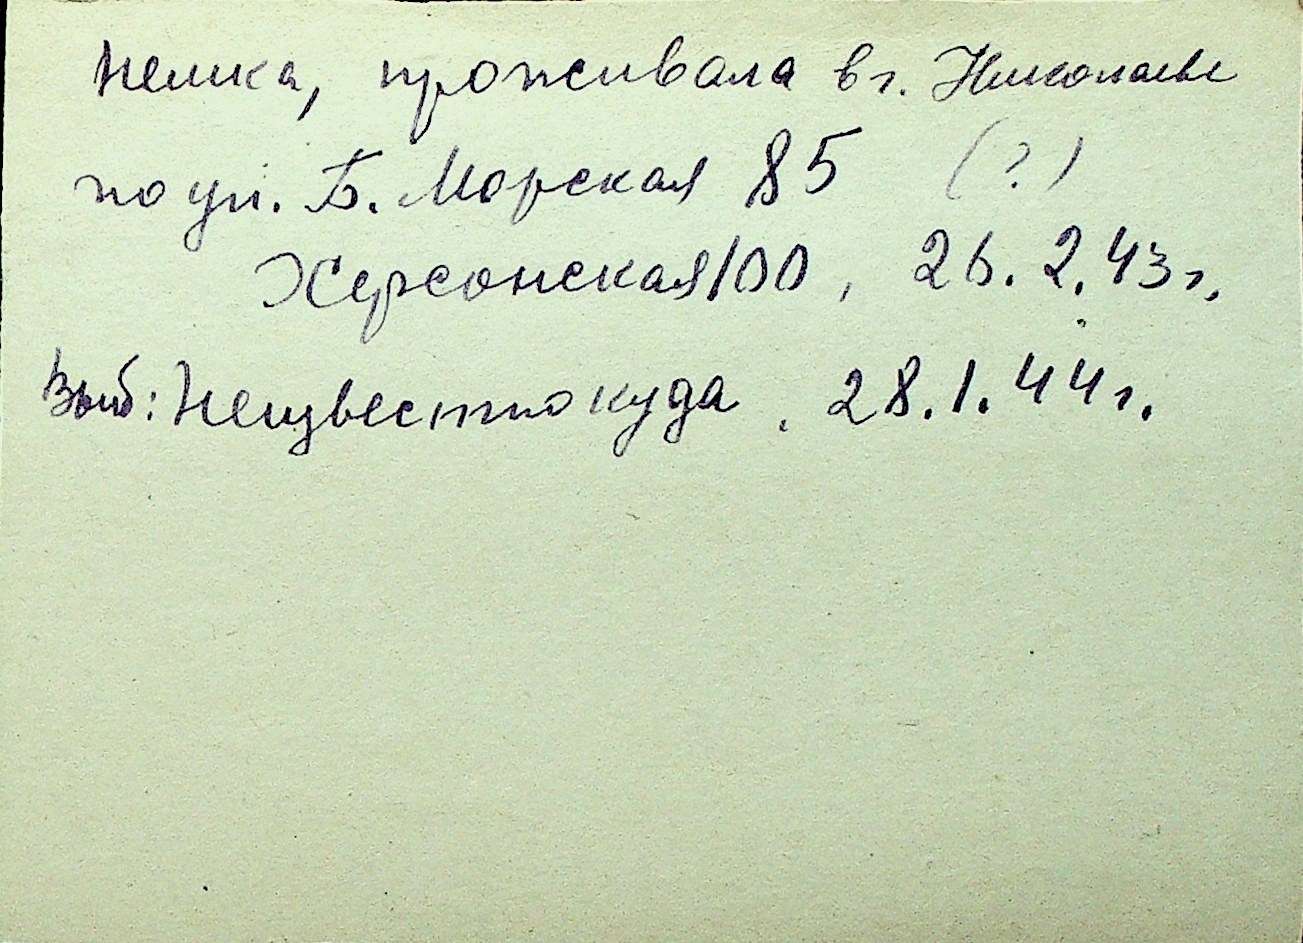 немка, проживала в г. Николаеве
по ул. Б. Морская 85 (?)
Херсонская 100, 26.2.43 г.
Выб: Неизвестно куда. 28.1.44 г.